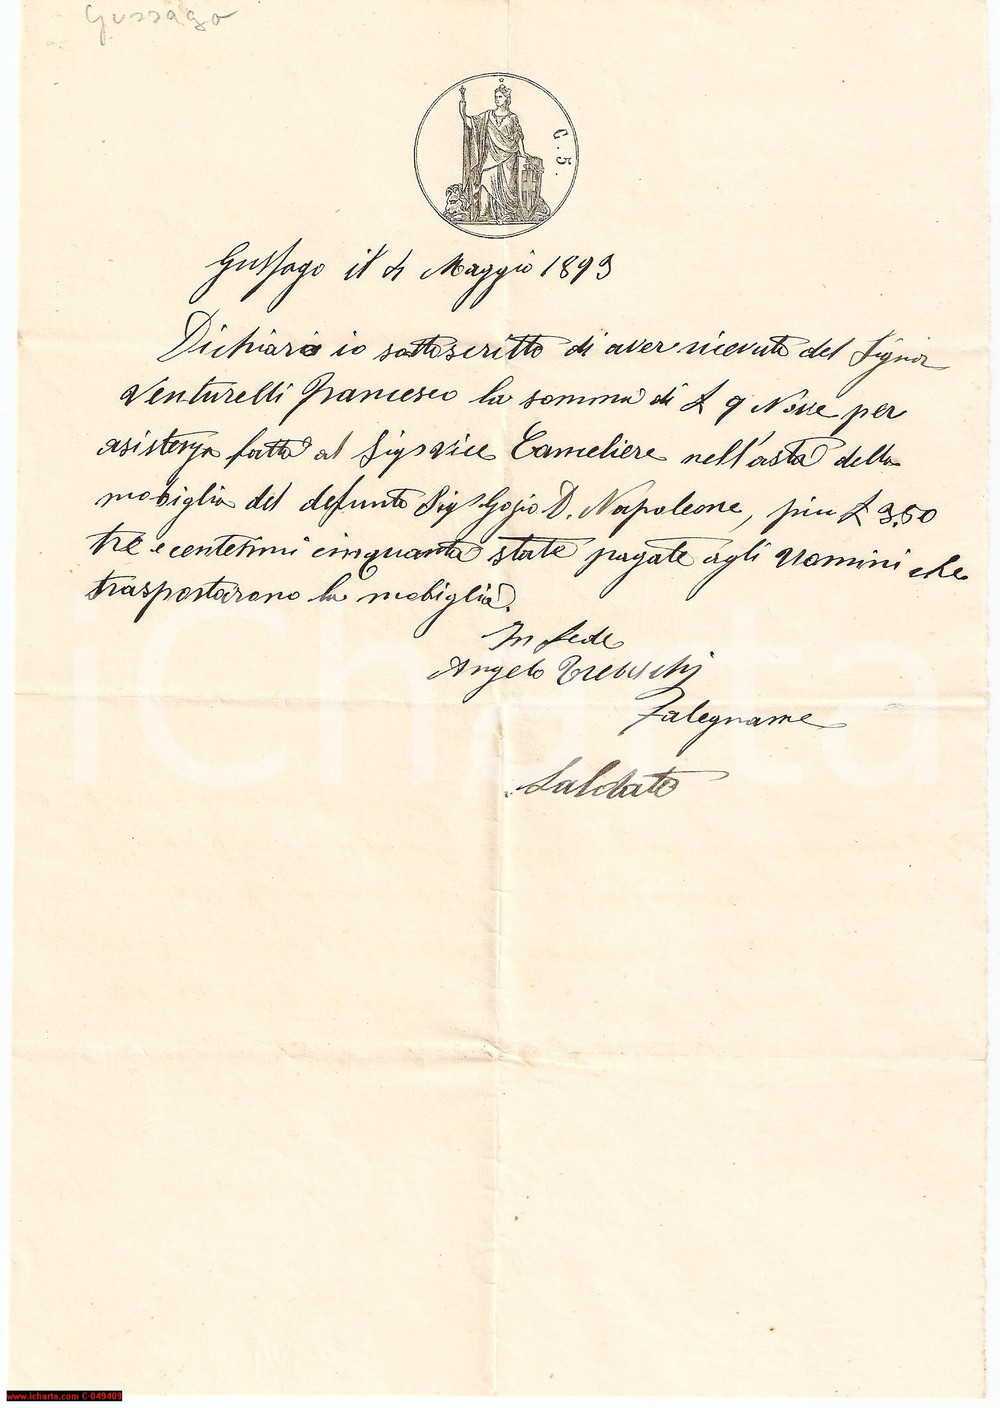 Gussago
C. 5.
Gussago il 4 Maggio 1893
Dichiaro io sottoscritto di aver ricevuto del Signor
Venturelli Francesco la somma di £ 9 Nove per
asistenza fatta al Sig vice Canceliere nell'asta della
mobiglia del defunto Sigr D. Napoleone, piu £ 3,50
tre e centesimi cinquanta state pagate agli Uomini che
trasportarono la mobiglia.
In fede
Angelo
Falegname
Saldato
icharta
www.icharta.com C-049409